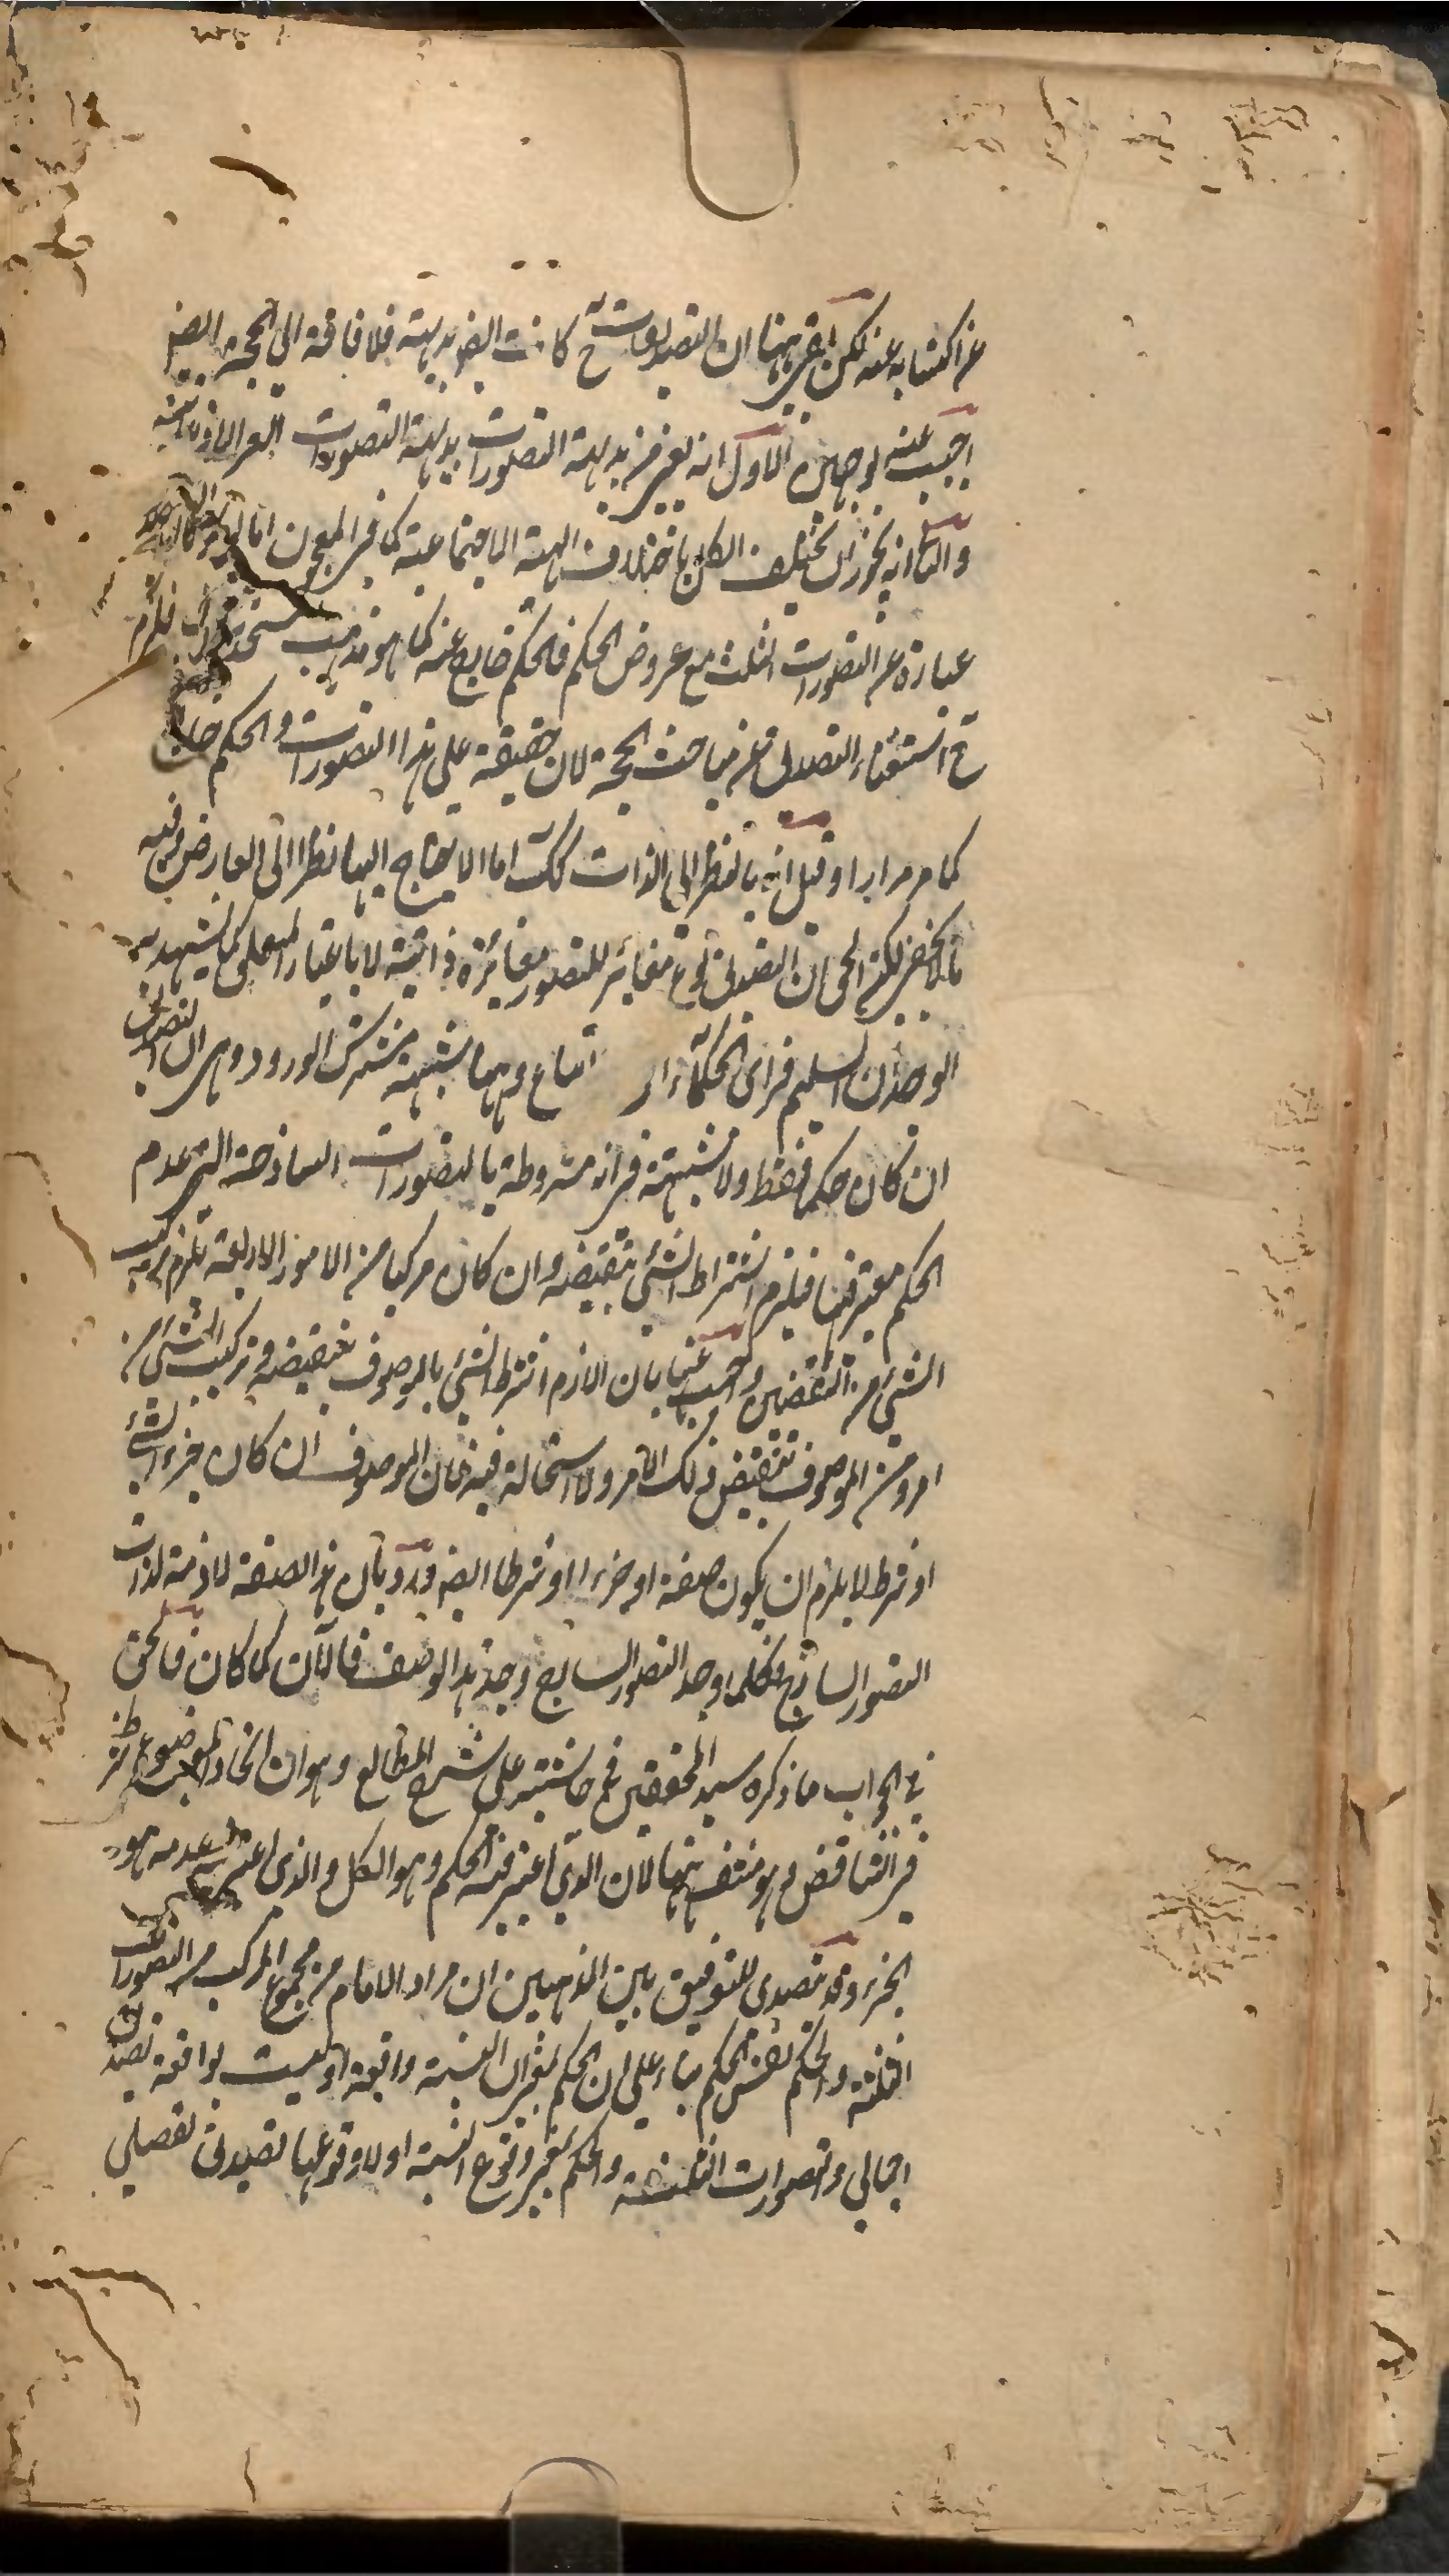 عن اكتسابه عنه لكن بقى ههنا ان التصديقات ح كانت ايضا بديهية فلا فاقة الى الحجة ايضا
اجيب عنه بوجهين الاول انه لعزم بديهة التصورات بديهة التصورات
والثانى انه يجوز ان يختلف الكل باختلاف الهيئة الاجتماعية كما فى المعجون اما
عبارة عن التصورات الثلث مع عروض الحكم فالحكم خارج عنه كما هو مذهب فلزم
ح استغناء التصديق عن مباحث الحجة لان حقيقة على هذا التصورات والحكم خارج
كما مر مرارا وقيل انه بالنظر الى الذات كك اما الاحتياج اليها نظرا الى العارض وفيه
ما لا يخفى لكن الحق ان التصديق نوع مغائر للتصور مغائرة ذاتية لا باعتبار المتعلق كما يشهد به
الوجدان السليم فراى الحكماء اتباع وههنا شبهة مشترك الورود وهى ان التصديق
ان كان حكما فقط ولا شبهة فى انه مشروطة بالتصورات الساذجة التى عدم
الحكم معتبر فيها فيلزم اشتراط الشئ بنقيضه وان كان مركبا من الامور الاربعة يلزم تركيب
الشئ من النقيضين واجيب عنها بان اللازم اشتراط الشئ بالموصوف بنقيضه وتركيب الشئ من
امر ومن الموصوف بنقيض ذلك الامر ولا استحالة فيه فان الموصوف ان كان جزء الشئ
او شرط لا يلزم ان يكون صفة او جزءا او شرطا ايضا ورد بان هذا الصفة لازمة لذات
التصور الساذج فكلما وجد التصور الساذج وجد هذا الوصف فالآن كما كان فالحق
فى الجواب ما ذكره سيد المحققين فى حاشيته على شرح المطالع وهو ان اتحاد الموضوع شرط
فى التناقض وهو منتف ههنا لان الذى اعتبر فيه الحكم وهو الكل والذى اعتبر فيه عدمه هو
الجزء وقد تصدى للتوفيق بين المذهبين ان مراد الامام من مجموع المركب من التصورات
الثلثة والحكم نفس الحكم بناء على ان الحكم بمعنى ان النسبة واقعة او ليست بواقعة تصديق
اجمالى وتصورات الثلثة والحكم بمعنى وقوع النسبة او لا وقوعها تصديق تفصيلى